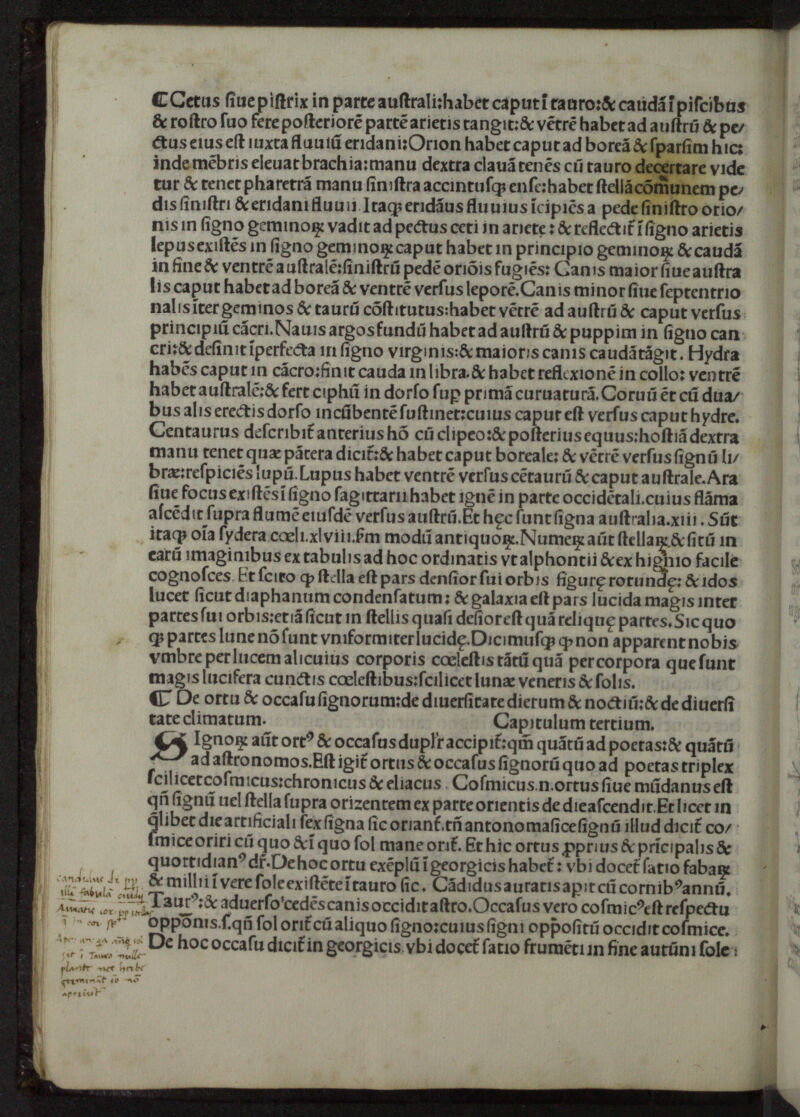 ⁋Cetus siue pistrix in parte australi:habet caput ī tauro:& caudā ī piscibus
& rostro suo fere posteriorē partē arietis tangit:& vētrē habet ad austrū & pe/
ctus eius est iuxta fluuiū eridani:Orion habet caput ad boreā & sparsim hic:
inde mēbris eleuat brachia:manu dextra clauā tenēs cū tauro decertare vide
tur & tenet pharetrā manu sinistra accintusq̧ ense:habet stellā cōmunem pe/
dis sinistri & eridani fluuii Itaq̧ eridāus fluuius īcipiēs a pede sinistro orio/
nis in signo geminoꝝ vadit ad pectus ceti in ariete : & reflectit̃ ī signo arietis
lepus existēs in signo geminoꝝ caput habet in principio geminoꝝ & caudā
in fine & ventrē australē:sinistrū pedē oriōis fugiēs: Canis maior siue austra
lis caput habet ad boreā & ventrē versus leporē.Canis minor siue septentrio
nalis īter geminos & taurū cōstitutus:habet vētrē ad austrū & caput versus
principiū cācri.Nauis argos fundū habet ad austrū & puppim in signo can
cri:& definit īperfecta in signo virginis:& maioris canis caudā tāgit. Hydra
habēs caput in cācro:finit cauda in libra.& habet reflexionē in collo: ventrē
habet australē:& fert ciphū in dorso sup primā curuaturā.Coruū ēt cū dua/
bus alis erectis dorso incūbentē sustinet:cuius caput est versus caput hydre.
Centaurus describit̃ anterius hō cū clipeo:& posterius equus:hostiā dextra
manu tenet quæ pātera dicit̃:& habet caput boreale: & vētrē versus signū li/
bræ:respiciēs lupū.Lupus habet ventrē versus cētaurū & caput australe.Ara
siue focus existēs ī signo sagittarii habet ignē in parte occidētali.cuius flāma
ascēdit supra flumē eiusdē versus austrū.Et hęc sunt signa australia.xiii. Sūt
itaq̧ oīa sydera cœli.xlviii.s̃m modū antiquoꝝ.Numeꝝ aūt stellaꝝ & sitū in
earū imaginibus ex tabulis ad hoc ordinatis vt alphontii & ex higinio facile
cognosces. Et scito ꝙ stella est pars densior sui orbis figurę rotundę: & idos
lucet sicut diaphanum condensatum: & galaxia est pars lucida magis inter
partes sui orbis:etiā sicut in stellis quasi desiorest quā reliquę partes.Sic quo
q̧ partes lune nō sunt vniformiter lucidę.Dicimusq̧ ꝙ non apparent nobis
vmbre per lucem alicuius corporis cœlestis tātū quā per corpora que sunt
magis lucifera cunctis cœlestibus:scilicet lunæ veneris & solis.
⁋ De ortu & occasu signorum:de diuersitate dierum & noctiū:& de diuersi
tate climatum. Capitulum tertium.
SIgnoꝝ aūt ortꝰ & occasus duplr̃ accipit̃:qm̃ quātū ad poetas:& quātū
ad astronomos.Est igit̃ ortus & occasus signorū quo ad poetas triplex
scilicet cosmicus:chronicus & eliacus. Cosmicus.n.ortus siue mūdanus est
qn̄ signū uel stella supra orizentem ex parte orientis de die ascendit.Et licet in
q̄libet die artificiali sex signa sic oriant̃.tn̄ antonomasice signū illud dicit̃ co/
smice oriri cū quo & ī quo sol mane orit̃. Et hic ortus ꝓprius & prīcipalis &
quottidianꝰ dr̃.De hoc ortu exēplū ī georgicis habet̃: vbi docet̃ satio fabaꝝ
& millii ī vere sole existēte ī tauro sic. Cādidus auratis apit cū cornibꝰ annū.
Taurꝰ:& aduerso cedēs canis occidit astro.Occasus vero cosmicꝰ est respectu
opponis.s.qn̄ sol orit̃ cū aliquo signo:cuius signi oppositū occidit cosmice.
De hoc occasu dicit̃ in georgicis vbi docet̃ satio frumēti in fine autūni sole :